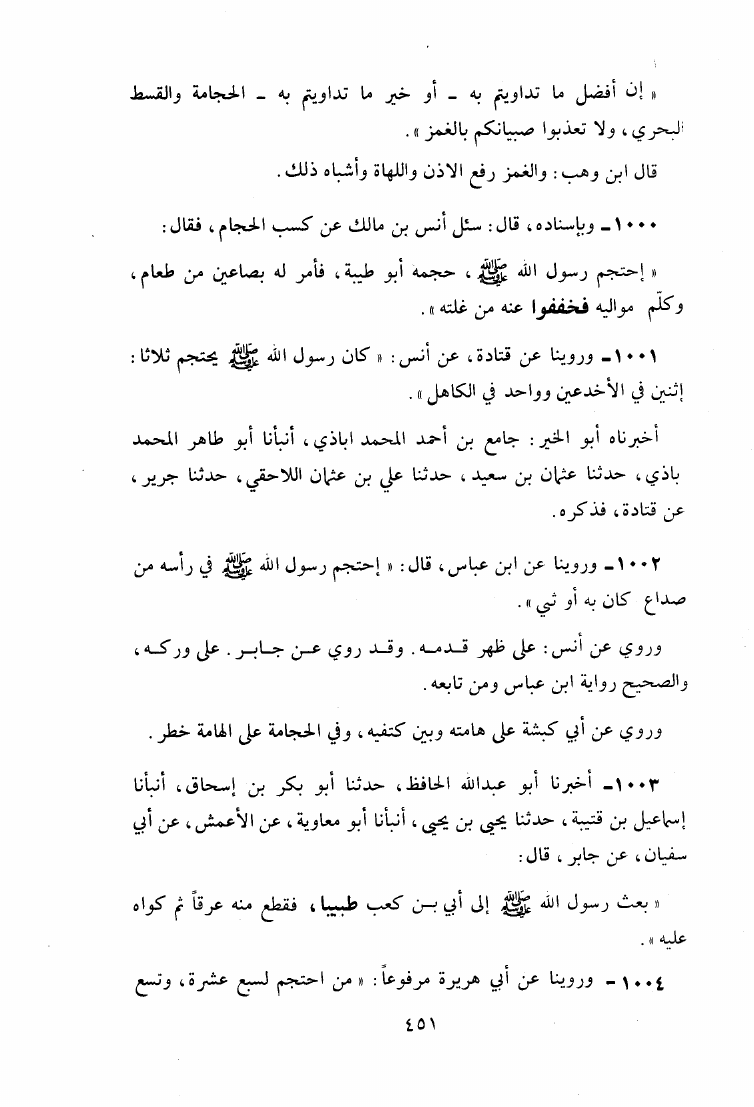 « إن أفضل ما تداويتم به ـ أو خير ما تداويتم به ـ الحجامة والقسط
البحري، ولا تعذبوا صبيانكم بالغمز ».
قال ابن وهب: والغمز رفع الاذن واللهاة وأشباه ذلك.
١٠٠٠ـ وبإسناده، قال: سئل أنس بن مالك عن كسب الحجام، فقال:
« إحتجم رسول الله ﷺ، حجمه أبو طيبة، فأمر له بصاعين من طعام،
وكلّم مواليه فخففوا عنه من غلته ».
١٠٠١ـ وروينا عن قتادة، عن أنس: « كان رسول الله ﷺ يحتجم ثلاثا:
إثنين في الأخدعين وواحد في الكاهل ».
أخبرناه أبو الخير: جامع بن أحمد المحمد اباذي، أنبأنا أبو طاهر المحمد
باذي، حدثنا عثمان بن سعيد، حدثنا علي بن عثمان اللاحقي، حدثنا جرير،
عن قتادة، فذكره.
١٠٠٢ـ وروينا عن ابن عباس، قال: « إحتجم رسول الله ﷺ في رأسه من
صداع كان به أو ثي ».
وروي عن أنس: على ظهر قدمه. وقد روي عن جابر. على وركه،
والصحيح رواية ابن عباس ومن تابعه.
وروي عن أبي كبشة على هامته وبين كتفيه، وفي الحجامة على الهامة خطر.
١٠٠٣ـ أخبرنا أبو عبدالله الحافظ، حدثنا أبو بكر بن إسحاق، أنبأنا
إسماعيل بن قتيبة، حدثنا يحيى بن يحيى، أنبأنا أبو معاوية، عن الأعمش، عن أبي
سفيان، عن جابر، قال:
« بعث رسول الله ﷺ إلى أبي بن كعب طبيبا، فقطع منه عرقاً ثم كواه
عليه ».
١٠٠٤ـ وروينا عن أبي هريرة مرفوعاً: « من احتجم لسبع عشرة، وتسع
٤٥١